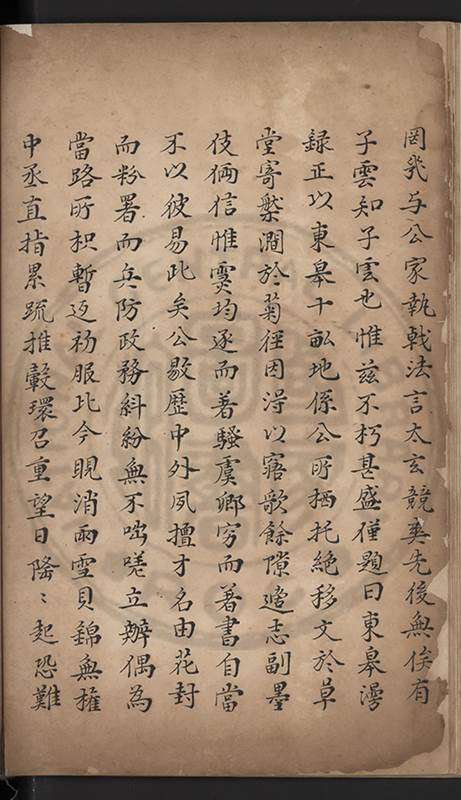 罔與公家執戟法言太玄競爽先後無俟有
子雲知子雲也惟茲不朽甚盛僅題曰東皋漫
錄正以東皋十畝地係公所栖托絕移文於草
堂寄槃澗於菊徑因得以寤歌餘隙遊志副墨
伎倆信惟靈均逐而著騷虞鄉窮而著書自當
不以彼易此矣公敭歷中外夙擅才名由花封
而粉署而兵防政務糾紛無不咄嗟立辦偶為
當路所枳暫返初服比今睍消雨雪貝錦無摧
中丞直指累疏推轂環召重望日隆〻起恐難